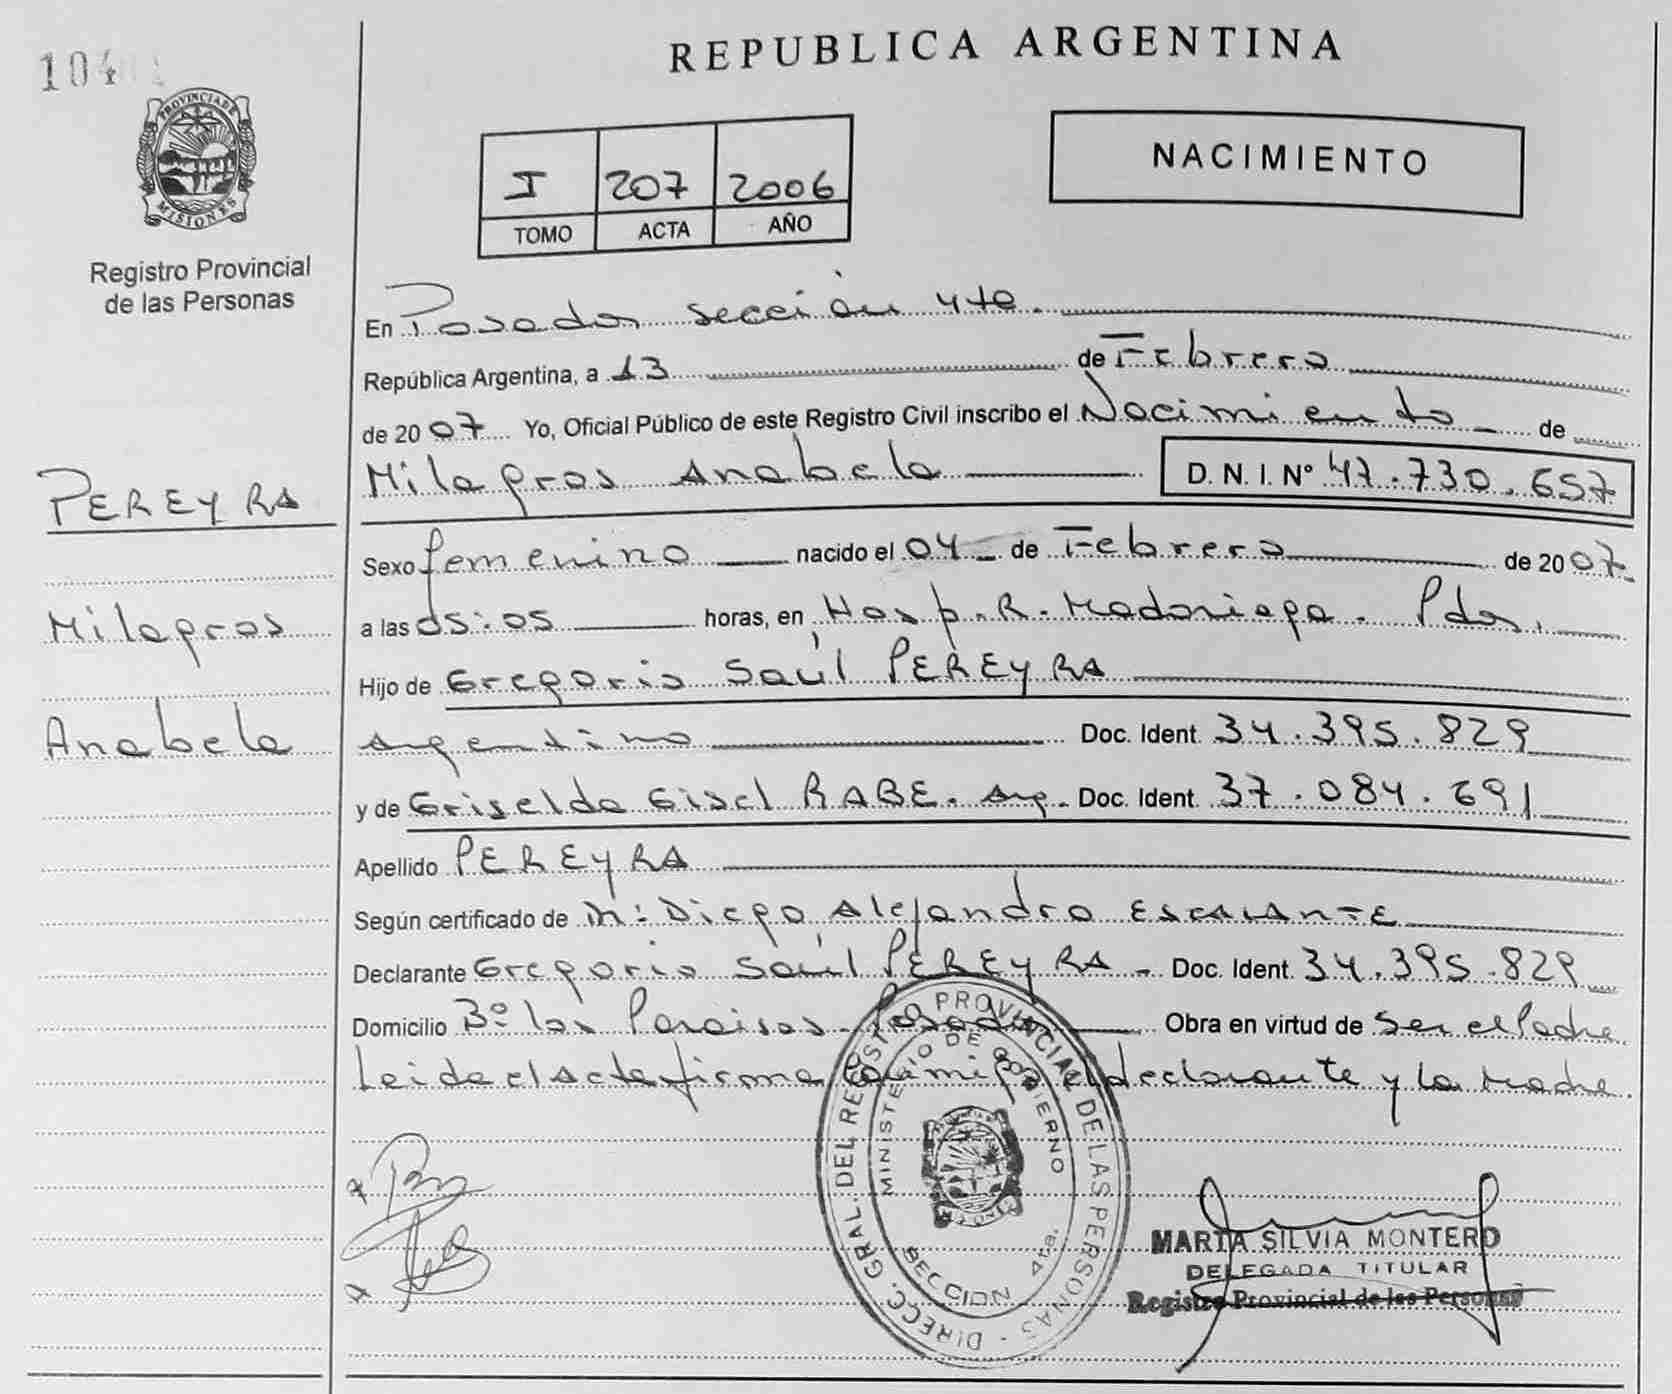 REPUBLICA ARGENTINA
104
PROVINCIA DE
MISIONES
Registro Provincial
de las Personas
I 207 2006
TOMO ACTA AÑO
NACIMIENTO
En Posadas sección 4ta.
República Argentina, a 13 de Febrero
de 2007 Yo, Oficial Público de este Registro Civil inscribo el Nacimiento de
Milagros Anabela D. N. I. Nº 47.730.657
PEREYRA
Sexo femenino nacido el 04 de Febrero de 2007
Milagros
a las 05:05 horas, en Hosp. R. Madariaga. Pdas.
Hijo de Gregorio Saúl PEREYRA
Anabela
argentino Doc. Ident. 34.395.829
y de Griselda Gisel RABE. Arg. Doc. Ident. 37.084.691
Apellido PEREYRA
Según certificado de M: Diego Alejandro ESCALANTE
Declarante Gregorio Saúl PEREYRA - Doc. Ident. 34.395.829
Domicilio Bº los Paraisos - Posadas Obra en virtud de ser el Padre
Leida el Acta firma conmigo el declarante y la madre
DIRECC. GRAL. DEL REGISTRO PROVINCIAL DE LAS PERSONAS
MINISTERIO DE GOBIERNO
SECCION 4ta.
MARTA SILVIA MONTERO
DELEGADA TITULAR
Registro Provincial de las Personas